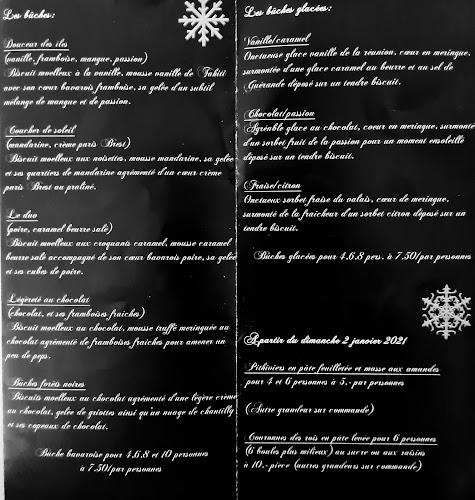 Les bûches:
Douceur des îles
(vanille, framboise, mangue, passion)
Biscuit moelleux à la vanille, mousse vanille de Tahiti
avec son cœur bavarois framboise, sa gelée d'un subtil
mélange de mangue et de passion.
Coucher de soleil
(mandarine, crème paris Brest)
Biscuit moelleux aux noisettes, mousse mandarine, sa gelée
et ses quartiers de mandarine agrémenté d'un cœur crème
paris Brest au praliné.
Le duo
(poire, caramel beurre salé)
Biscuit moelleux aux croquants caramel, mousse caramel
beurre salé accompagné de son cœur bavarois poire, sa gelée
et ses cubes de poire.
Légèreté au chocolat
(chocolat, et ses framboises fraiches)
Biscuit moelleux au chocolat, mousse truffé meringuée au
chocolat agrémenté de framboises fraiches pour amener un
peu de peps.
Bûches forêts noires
Biscuits moelleux au chocolat agrémenté d'une légère crème
au chocolat, gelée de griottes ainsi qu'un nuage de chantilly
et ses copeaux de chocolat.
Bûche bavaroise pour 4,6,8 et 10 personnes
à 7.50/par personnes
Les bûches glacées:
Vanille/caramel
Onctueuse glace vanille de la réunion, cœur en meringue,
surmontée d'une glace caramel au beurre et au sel de
Guérande déposé sur un tendre biscuit.
Chocolat/passion
Agréable glace au chocolat, coeur en meringue, surmonté
d'un sorbet fruit de la passion pour un moment ensoleillé
déposé sur un tendre biscuit.
Fraise/citron
Onctueux sorbet fraise du valais, cœur de meringue,
surmonté de la fraicheur d'un sorbet citron déposé sur un
tendre biscuit.
Bûches glacées pour 4,6,8 pers. à 7.50/par personnes
A partir du dimanche 2 janvier 2021
Pithiviers en pâte feuilletée et masse aux amandes
pour 4 et 6 personnes à 5.-par personnes
(Autre grandeur sur commande)
Couronnes des rois en pâte levée pour 6 personnes
(6 boules plus milieux) au sucre ou aux raisins
à 10.-pièce (autres grandeurs sur commande)